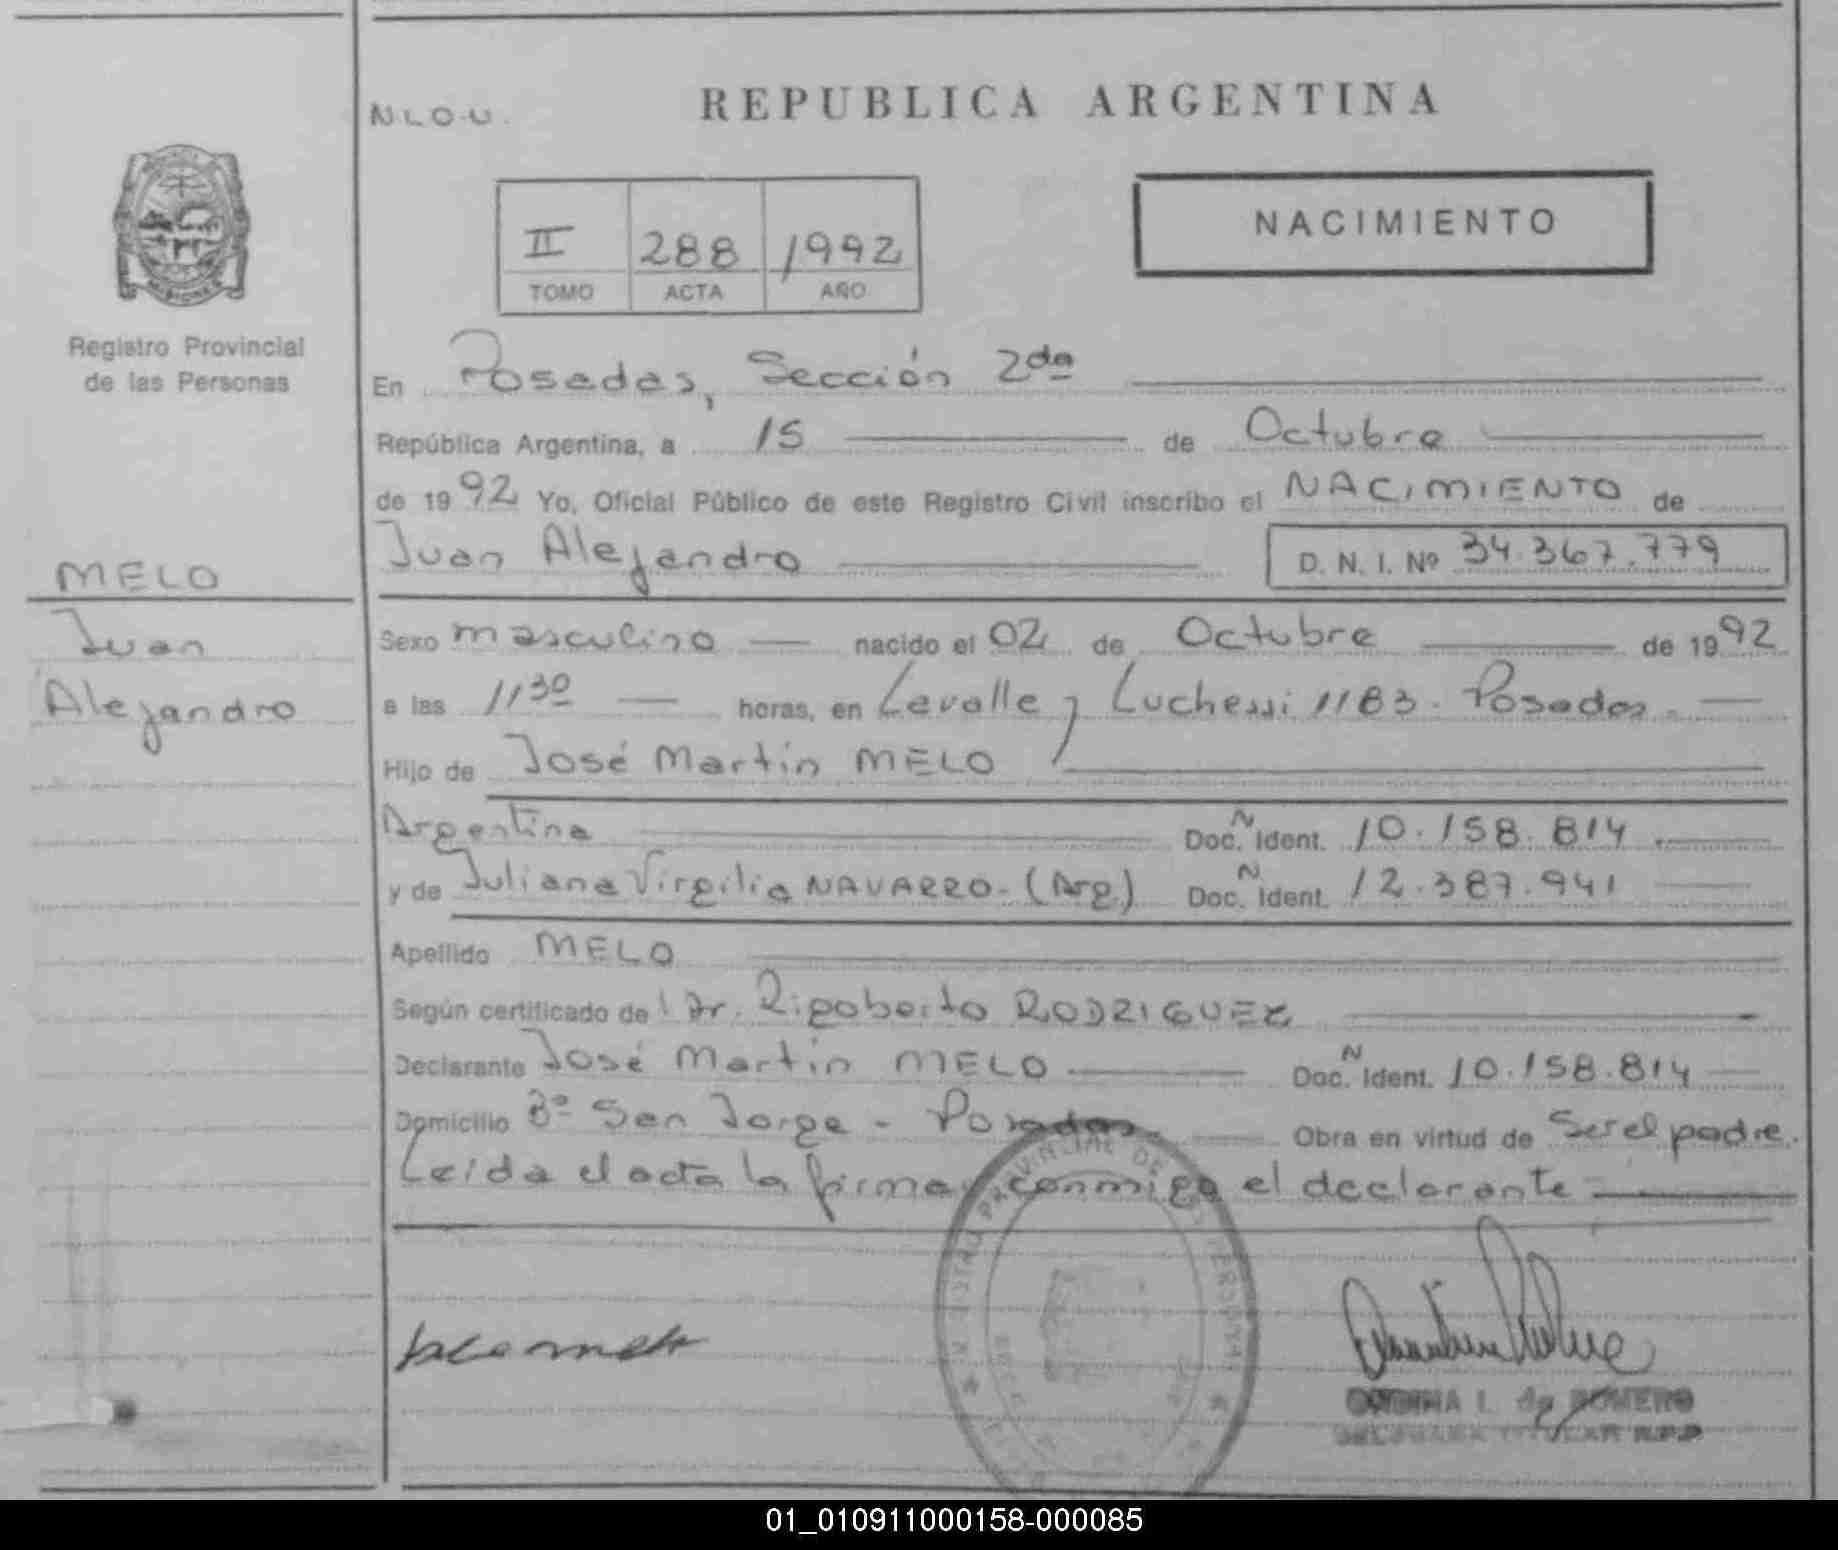 N.L.O.U.
REPUBLICA ARGENTINA
II 288 1992
TOMO ACTA AÑO
NACIMIENTO
MISIONES
Registro Provincial
de las Personas
MELO
Juan
Alejandro
En Posadas, Sección 2da
República Argentina, a 15 de Octubre
de 1992 Yo, Oficial Público de este Registro Civil inscribo el NACIMIENTO de
Juan Alejandro D. N. I. Nº 34.367.779
Sexo masculino nacido el 02 de Octubre de 1992
a las 11 30 horas, en Lavalle y Luchessi 1183. Posadas.
Hijo de José Martín MELO
Argentina Doc. N Ident. 10.158.814
y de Juliana Virgilia NAVARRO. (Arg.) Doc. N Ident. 12.387.941
Apellido MELO
Según certificado de Dr. Rigoberto RODRIGUEZ
Declarante José Martín MELO Doc. N Ident. 10.158.814
Domicilio Bº San Jorge - Posadas. Obra en virtud de Ser el padre.
Leída el acta la firma conmigo el declarante
PROVINCIAL DE LAS PERSONAS
L. de ROMERO
R.P.P.
01_010911000158-000085